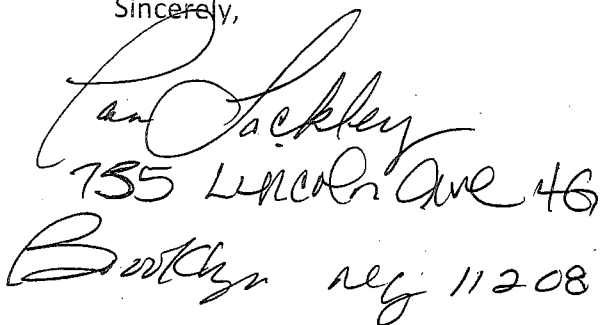 Sincerely,
Lackley
735 Lincoln Ave 4G
Brooklyn NY 11208